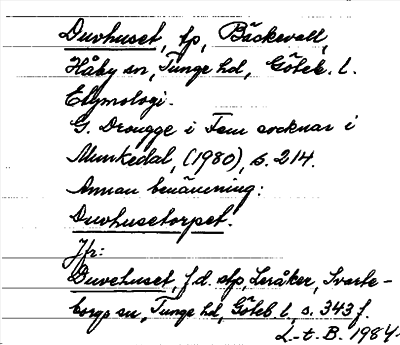 Duvhuset, tp, Bäckevall,
Håby sn, Tunge hd, Göteb. l.
Etymologi.
G. Drougge i Fem socknar i
Munkedal, (1980), s. 214.
Annan benämning:
Duvhusetorpet.
Jfr:
Duvehuset, f.d. stp, Leråker, Svarte-
borgs sn, Tunge hd, Göteb. l, s. 343 f.
L-t. B. 1984.